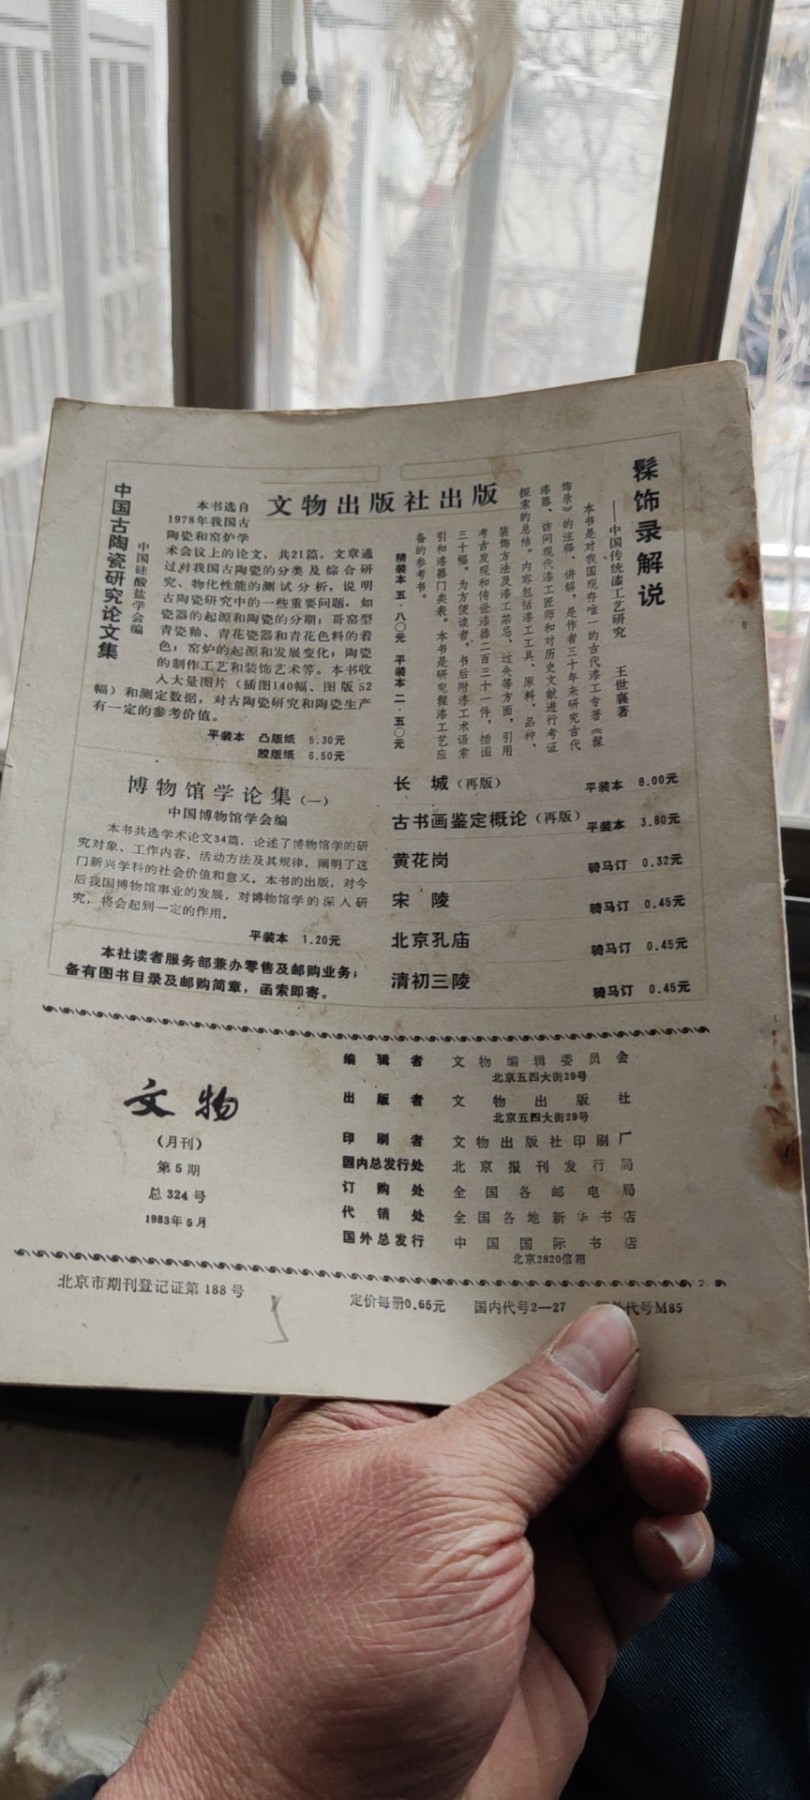 文物出版社出版
髹饰录解说
——中国传统漆工艺研究 王世襄著
本书是对我国现存唯一的古代漆工专著《髹
饰录》的注释、讲解，是作者三十年来研究古代
漆器、访问现代漆工匠师和对历史文献进行考证
探索的总结。内容包括漆工工具、原料、品种、
装饰方法及漆工禁忌、过失等方面，引用
考古发现和传世漆器二百三十一件，插图
三十幅。为方便读者，书后附漆工术语索
引和漆器门类表。本书是研究髹漆工艺应
备的参考书。
精装本 五·八〇元 平装本 二·五〇元
中国古陶瓷研究论文集
中国硅酸盐学会编
本书选自
1978年我国古
陶瓷和窑炉学
术会议上的论文，共21篇。文章通
过对我国古陶瓷的分类及综合研
究、物化性能的测试分析，说明
古陶瓷研究中的一些重要问题，如
瓷器的起源和陶瓷的分期；哥窑型
青瓷釉、青花瓷器和青花色料的着
色；窑炉的起源和发展变化；陶瓷
的制作工艺和装饰艺术等。本书收
入大量图片（插图140幅、图版52
幅）和测定数据，对古陶瓷研究和陶瓷生产
有一定的参考价值。
平装本 凸版纸 5.30元
胶版纸 6.50元
博物馆学论集（一）
中国博物馆学会编
本书共选学术论文34篇，论述了博物馆学的研
究对象、工作内容、活动方法及其规律，阐明了这
门新兴学科的社会价值和意义。本书的出版，对今
后我国博物馆事业的发展，对博物馆学的深入研
究，将会起到一定的作用。
平装本 1.20元
本社读者服务部兼办零售及邮购业务；
备有图书目录及邮购简章，函索即寄。
长 城（再版） 平装本 8.00元
古书画鉴定概论（再版） 平装本 3.80元
黄花岗 骑马订 0.32元
宋 陵 骑马订 0.45元
北京孔庙 骑马订 0.45元
清初三陵 骑马订 0.45元
文物
（月刊）
第5期
总324号
1983年5月
编辑者 文物编辑委员会
北京五四大街29号
出版者 文物出版社
北京五四大街29号
印刷者 文物出版社印刷厂
国内总发行处 北京报刊发行局
订购处 全国各邮电局
代销处 全国各地新华书店
国外总发行 中国国际书店
北京2820信箱
北京市期刊登记证第188号
定价每册0.65元 国内代号2—27 代号M85